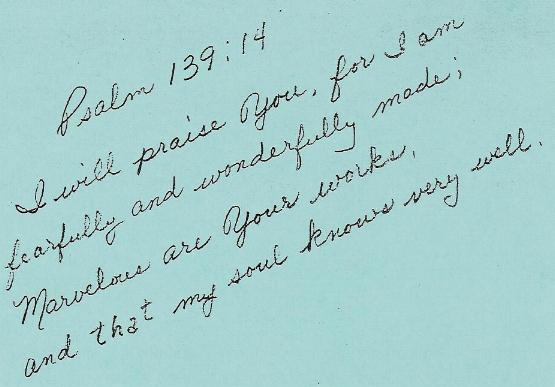 Psalm 139:14
I will praise You, for I am
fearfully and wonderfully made;
Marvelous are Your works,
and that my soul knows very well.